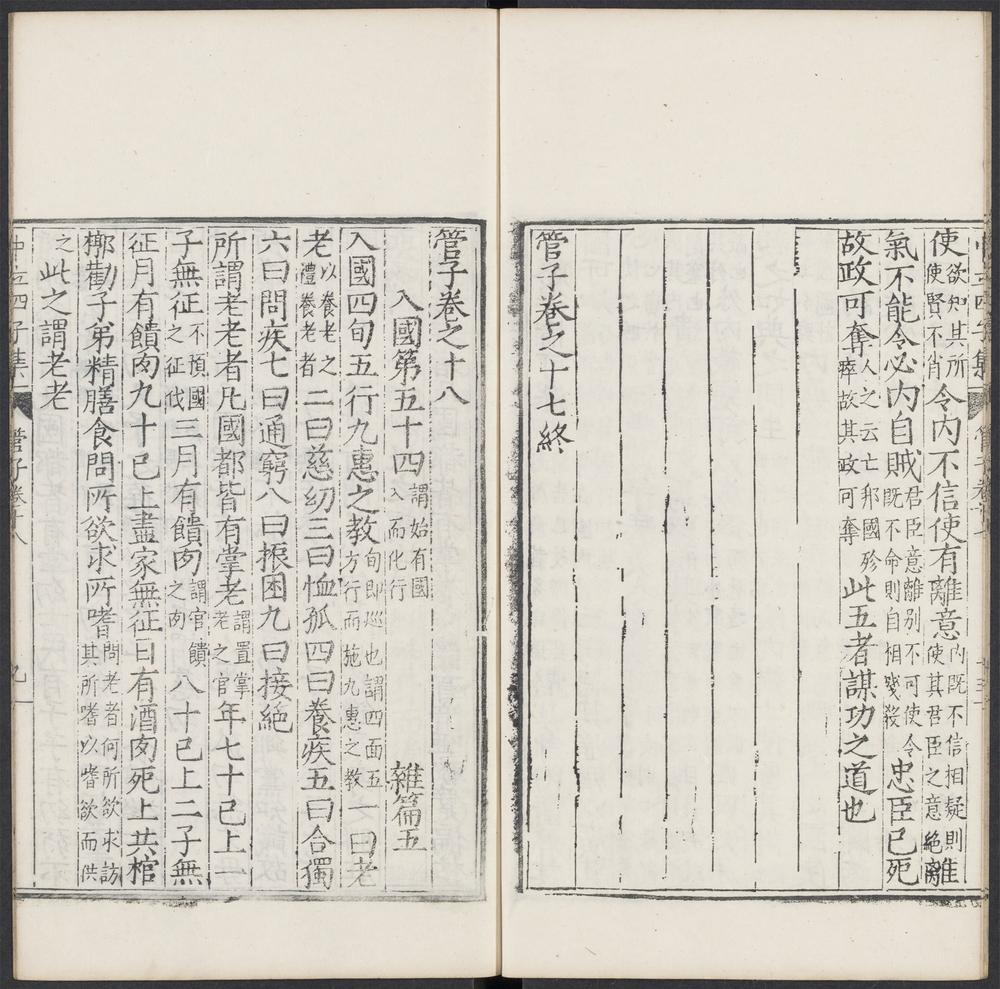 使欲知其所使賢不肖令内不信使有離意内既不信相疑則使其君臣之意絶離離
氣不能令必内自賊君臣意離别不可使令既不命則自相殘殺忠臣已死
故政可奪人之云亡邦國殄瘁故其政可奪此五者謀功之道也
管子卷之十七終
管子卷之十八
入國第五十四謂始有國入而化行 雜篇五
入國四旬五行九惠之教旬即巡也謂四面五方行而施九惠之教一曰老
老以養老之禮養老者二曰慈幼三曰恤孤四曰養疾五曰合獨
六曰問疾七曰通窮八曰振困九曰接絶
所謂老老者凡國都皆有掌老謂置掌老之官年七十已上一
子無征不預國之征伐三月有饋肉謂官饋之肉八十已上二子無
征月有饋肉九十已上盡家無征日有酒肉死上共棺
槨勸子弟精膳食問所欲求所嗜問老者何所欲求訪其所嗜以嗜欲而供
之此之謂老老
中立四子集 管子卷十八